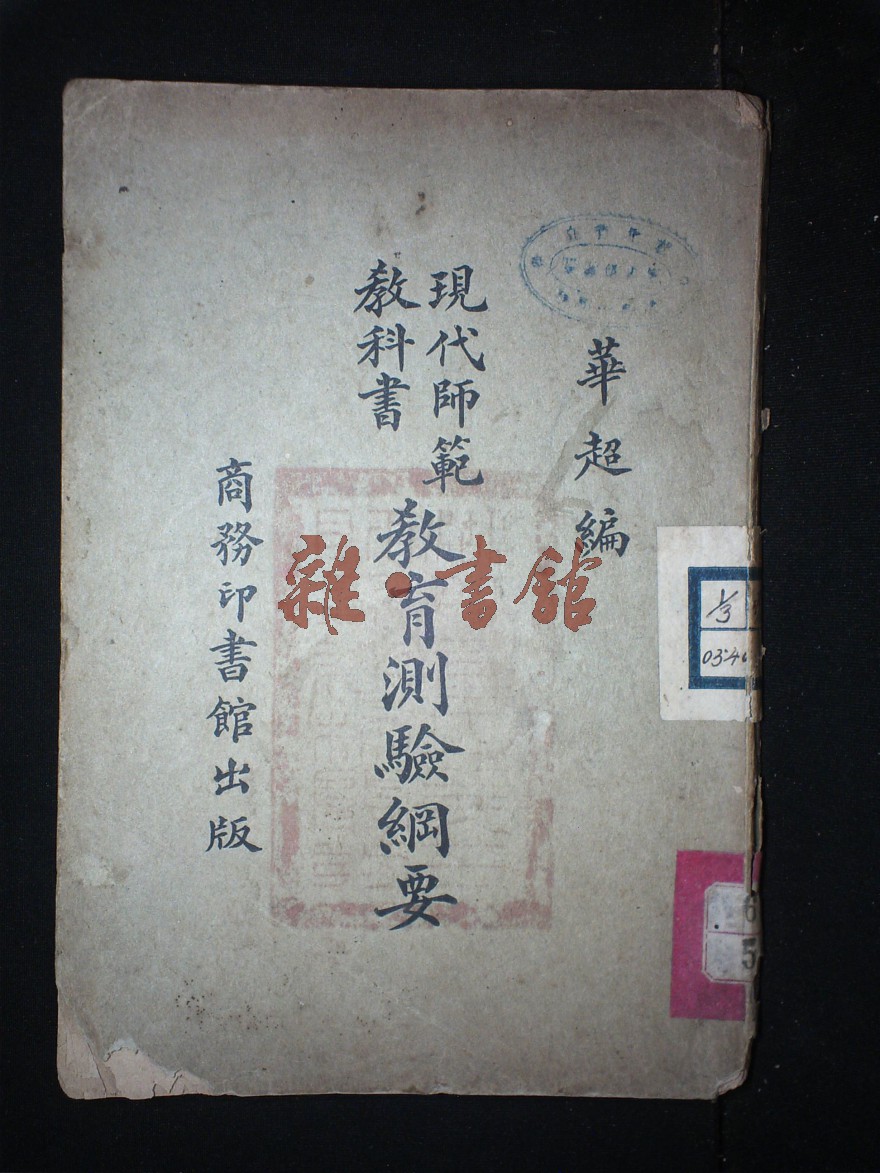 華超編
現代師範
教科書
教育測驗綱要
商務印書館出版
雜·書館
1/3
6
5